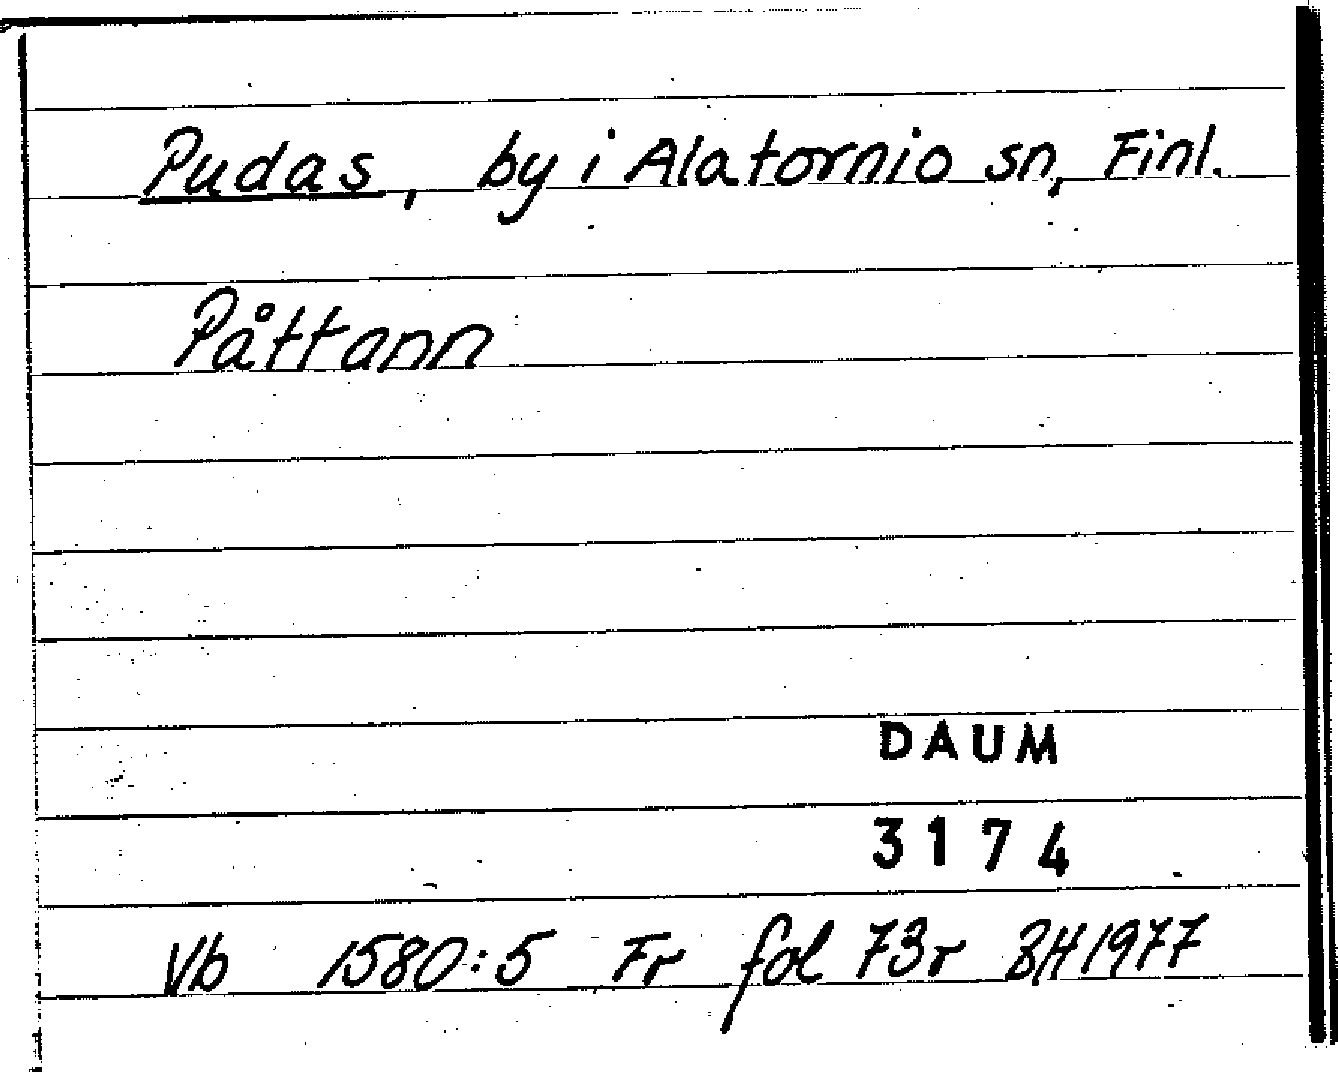 Pudas, by i Alatornio sn, Finl.
Påttann
DAUM
3174
Vb 1580:5 Fr fol 73r BH 1977